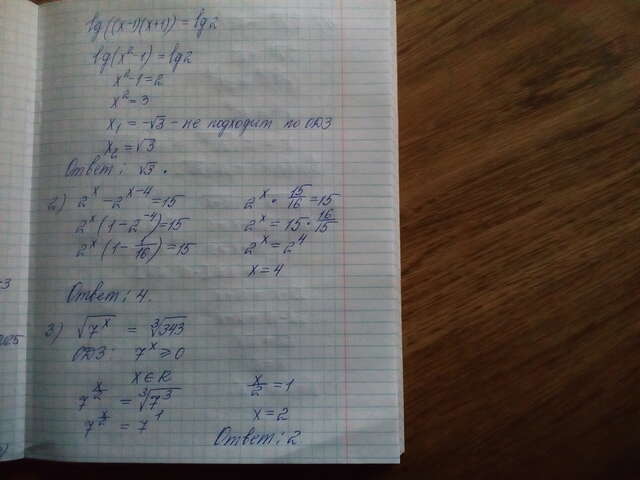 lg((x-1)(x+1)) = lg2
lg(x²-1) = lg2
x²-1=2
x²=3
x₁ = -√3 - не подходит по ОДЗ
x₂ = √3
Ответ: √3.
2) 2^x - 2^(x-4) = 15
2^x (1-2^(-4)) = 15
2^x (1- 1/16) = 15
2^x · 15/16 = 15
2^x = 15 · 16/15
2^x = 2^4
x=4
Ответ: 4.
3) √(7^x) = ∛343
ОДЗ: 7^x ≥ 0
x∈R
7^(x/2) = ∛(7^3)
7^(x/2) = 7^1
x/2 = 1
x=2
Ответ: 2